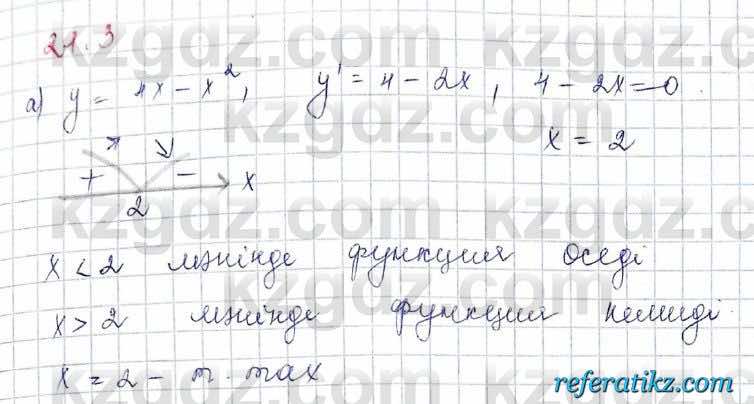 21.3
а) y = 4x - x², y' = 4 - 2x, 4 - 2x = 0.
x = 2
+ - x
2
x < 2 мәнінде функция өседі
x > 2 мәнінде функция кемиді.
x = 2 - т. max
kzgdz.com
referatikz.com